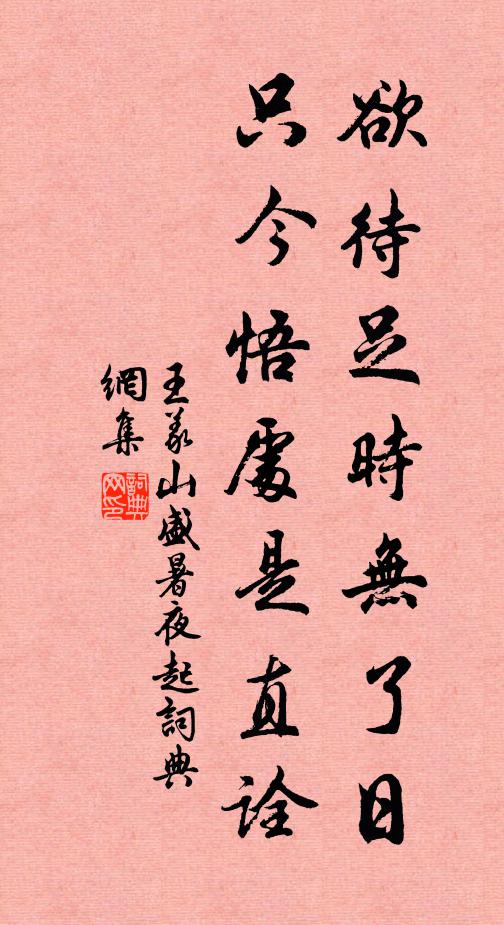 欲待足時無了日
只今悟處是直詮
王義山盛暑夜起詞典
網集
詞典
网印